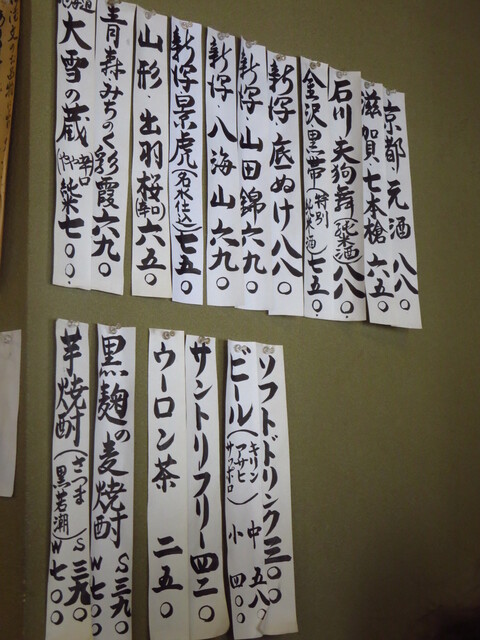 京都 元酒 八八〇
滋賀 七本槍 六五〇
石川 天狗舞(純米酒)八八〇
金沢・黒帯(特別純米酒)七五〇
新潟・底ぬけ八八〇
新潟・山田錦六九〇
新潟・八海山六九〇
新潟景虎(名水仕込)七五〇
山形・出羽桜(辛口)六五〇
青森みちのく彩霞六九〇
北海道 大雪の蔵(やや辛口)築七〇〇
ソフトドリンク三〇〇
ビール(キリン アサヒ サッポロ)中 五八〇 小 四〇〇
サントリフリー四二〇
ウーロン茶 二五〇
黒麹の麦焼酎 S 三九〇 W 七〇〇
芋焼酎(さつま 黒若潮)S 三九〇 W 七〇〇